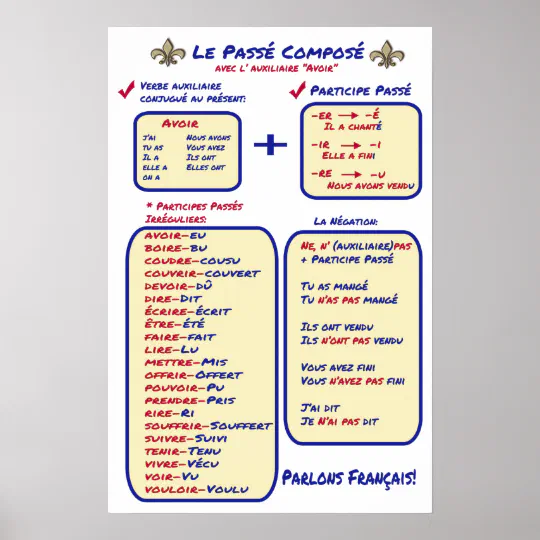 Le Passé Composé
avec l' auxiliaire "Avoir"
Verbe auxiliaire
conjugué au présent:
Avoir
J'ai Nous avons
Tu as Vous avez
Il a Ils ont
Elle a Elles ont
On a
+
Participe Passé
-er → -é
Il a chanté
-ir → -i
Elle a fini
-re → -u
Nous avons vendu
* Participes Passés
Irréguliers:
avoir-eu
boire-bu
coudre-cousu
couvrir-couvert
devoir-dû
dire-Dit
écrire-écrit
être-été
faire-fait
lire-Lu
mettre-Mis
offrir-Offert
pouvoir-Pu
prendre-Pris
rire-Ri
souffrir-Souffert
suivre-Suivi
tenir-Tenu
vivre-Vécu
voir-Vu
vouloir-Voulu
La Négation:
Ne, n' (auxiliaire)pas
+ Participe Passé
Tu as mangé
Tu n'as pas mangé
Ils ont vendu
Ils n'ont pas vendu
Vous avez fini
Vous n'avez pas fini
J'ai dit
Je n'ai pas dit
Parlons Français!